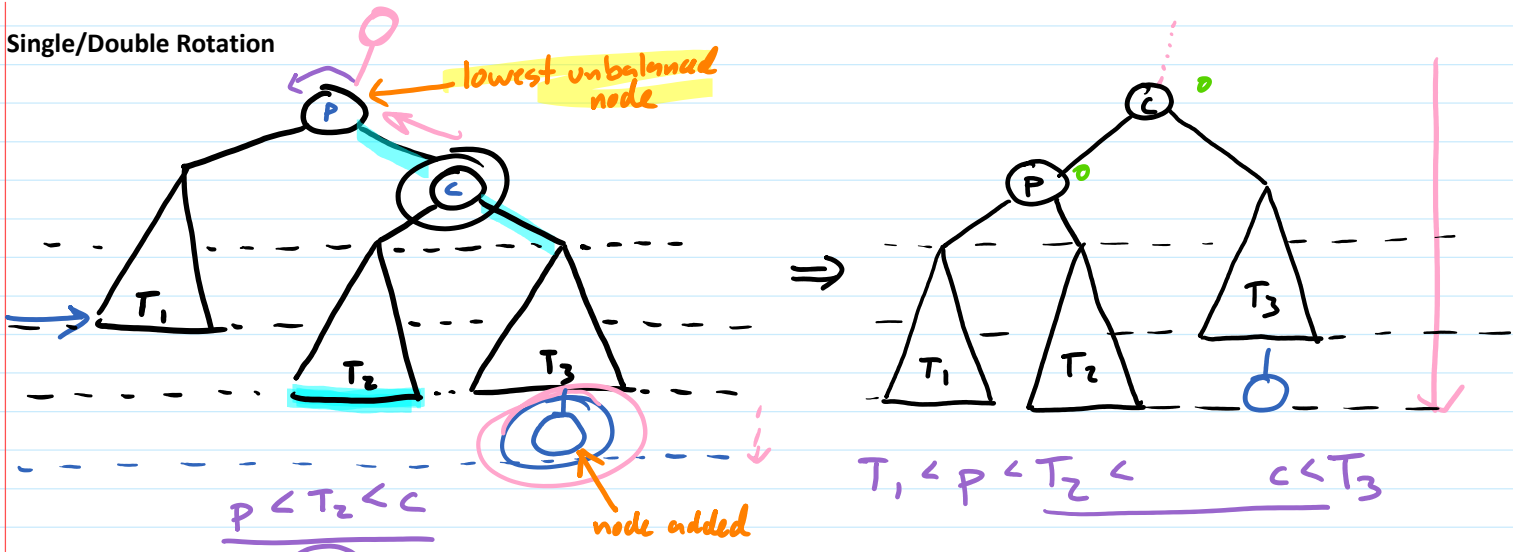 Single/Double Rotation
lowest unbalanced
node
P
C
T1
T2
T3
node added
p < T2 < c
⇒
C
P
T1
T2
T3
T1 < p < T2 < c < T3